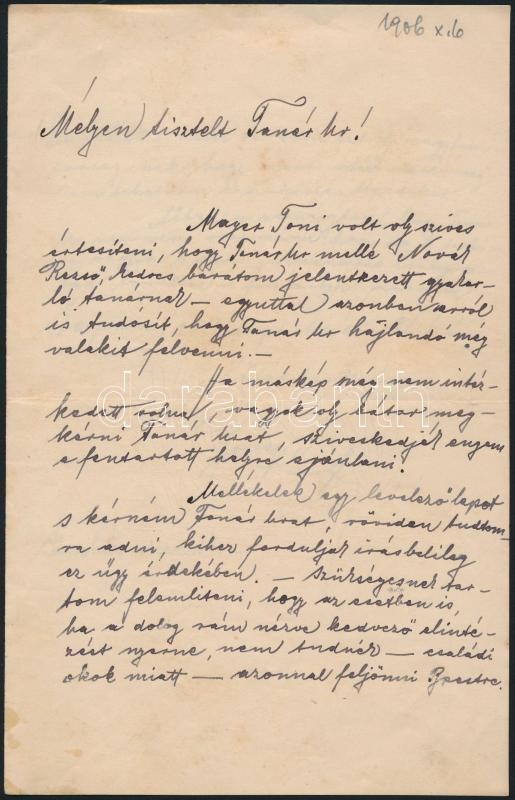 1906 X. 6
Mélyen tisztelt Tanár Ur!
Mayer Toni volt oly szives
értesíteni, hogy Tanár Ur mellé Novák
Rezső, kedves bárátom jelentkezett gyakor-
ló tanárnak — egyuttal azonban arról
is tudósit, hogy Tanár Ur hajlandó még
valakit felvenni. —
Ha máskép még nem intéz-
kedett volna, vagyok oly bátor meg-
kérni Tanár Urat, sziveskedjék engem
a fentartott helyre ajánlani.
Mellékelek egy levelező lapot
s kérném Tanár Urat, röviden tudtom-
ra adni, kihez forduljak irásbelileg
ez ügy érdekében. — Szükségesnek tar-
tom felemliteni, hogy az esetben is,
ha a dolog rám nézve kedvező elinté-
zést nyerne, nem tudnék — családi
okok miatt — azonnal feljönni Bpestre.
darabanth